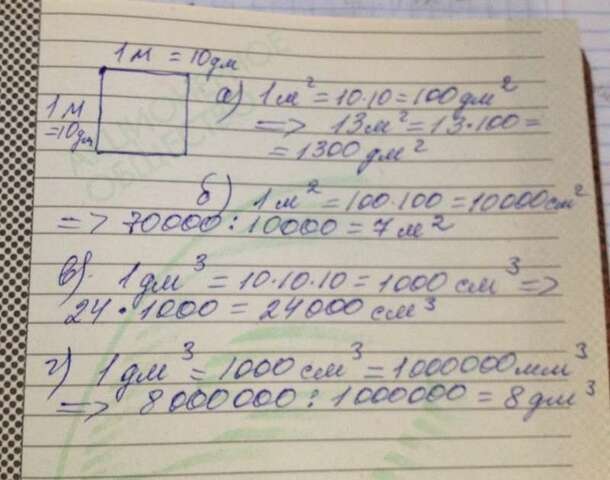 1м = 10дм
1м
=10дм
а) 1м² = 10·10 = 100 дм²
=> 13м² = 13·100 =
= 1300 дм²
б) 1м² = 100·100 = 10000 см²
=> 70000 : 10000 = 7м²
в) 1дм³ = 10·10·10 = 1000 см³ =>
24 · 1000 = 24000 см³
г) 1дм³ = 1000 см³ = 1000000 мм³
=> 8000000 : 1000000 = 8 дм³
АКЦИОНЕРНОЕ
ОБЩЕСТВО